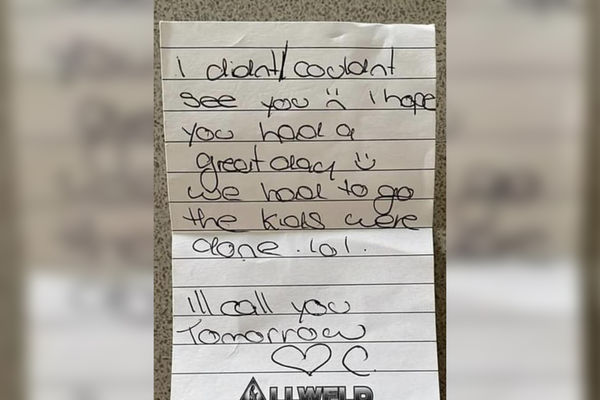 I didnt/couldnt
see you ☹ I hope
you had a
great day ☺
we had to go
the kids were
done. lol.
Ill call you
Tomorrow
♡ C
ALLWELD